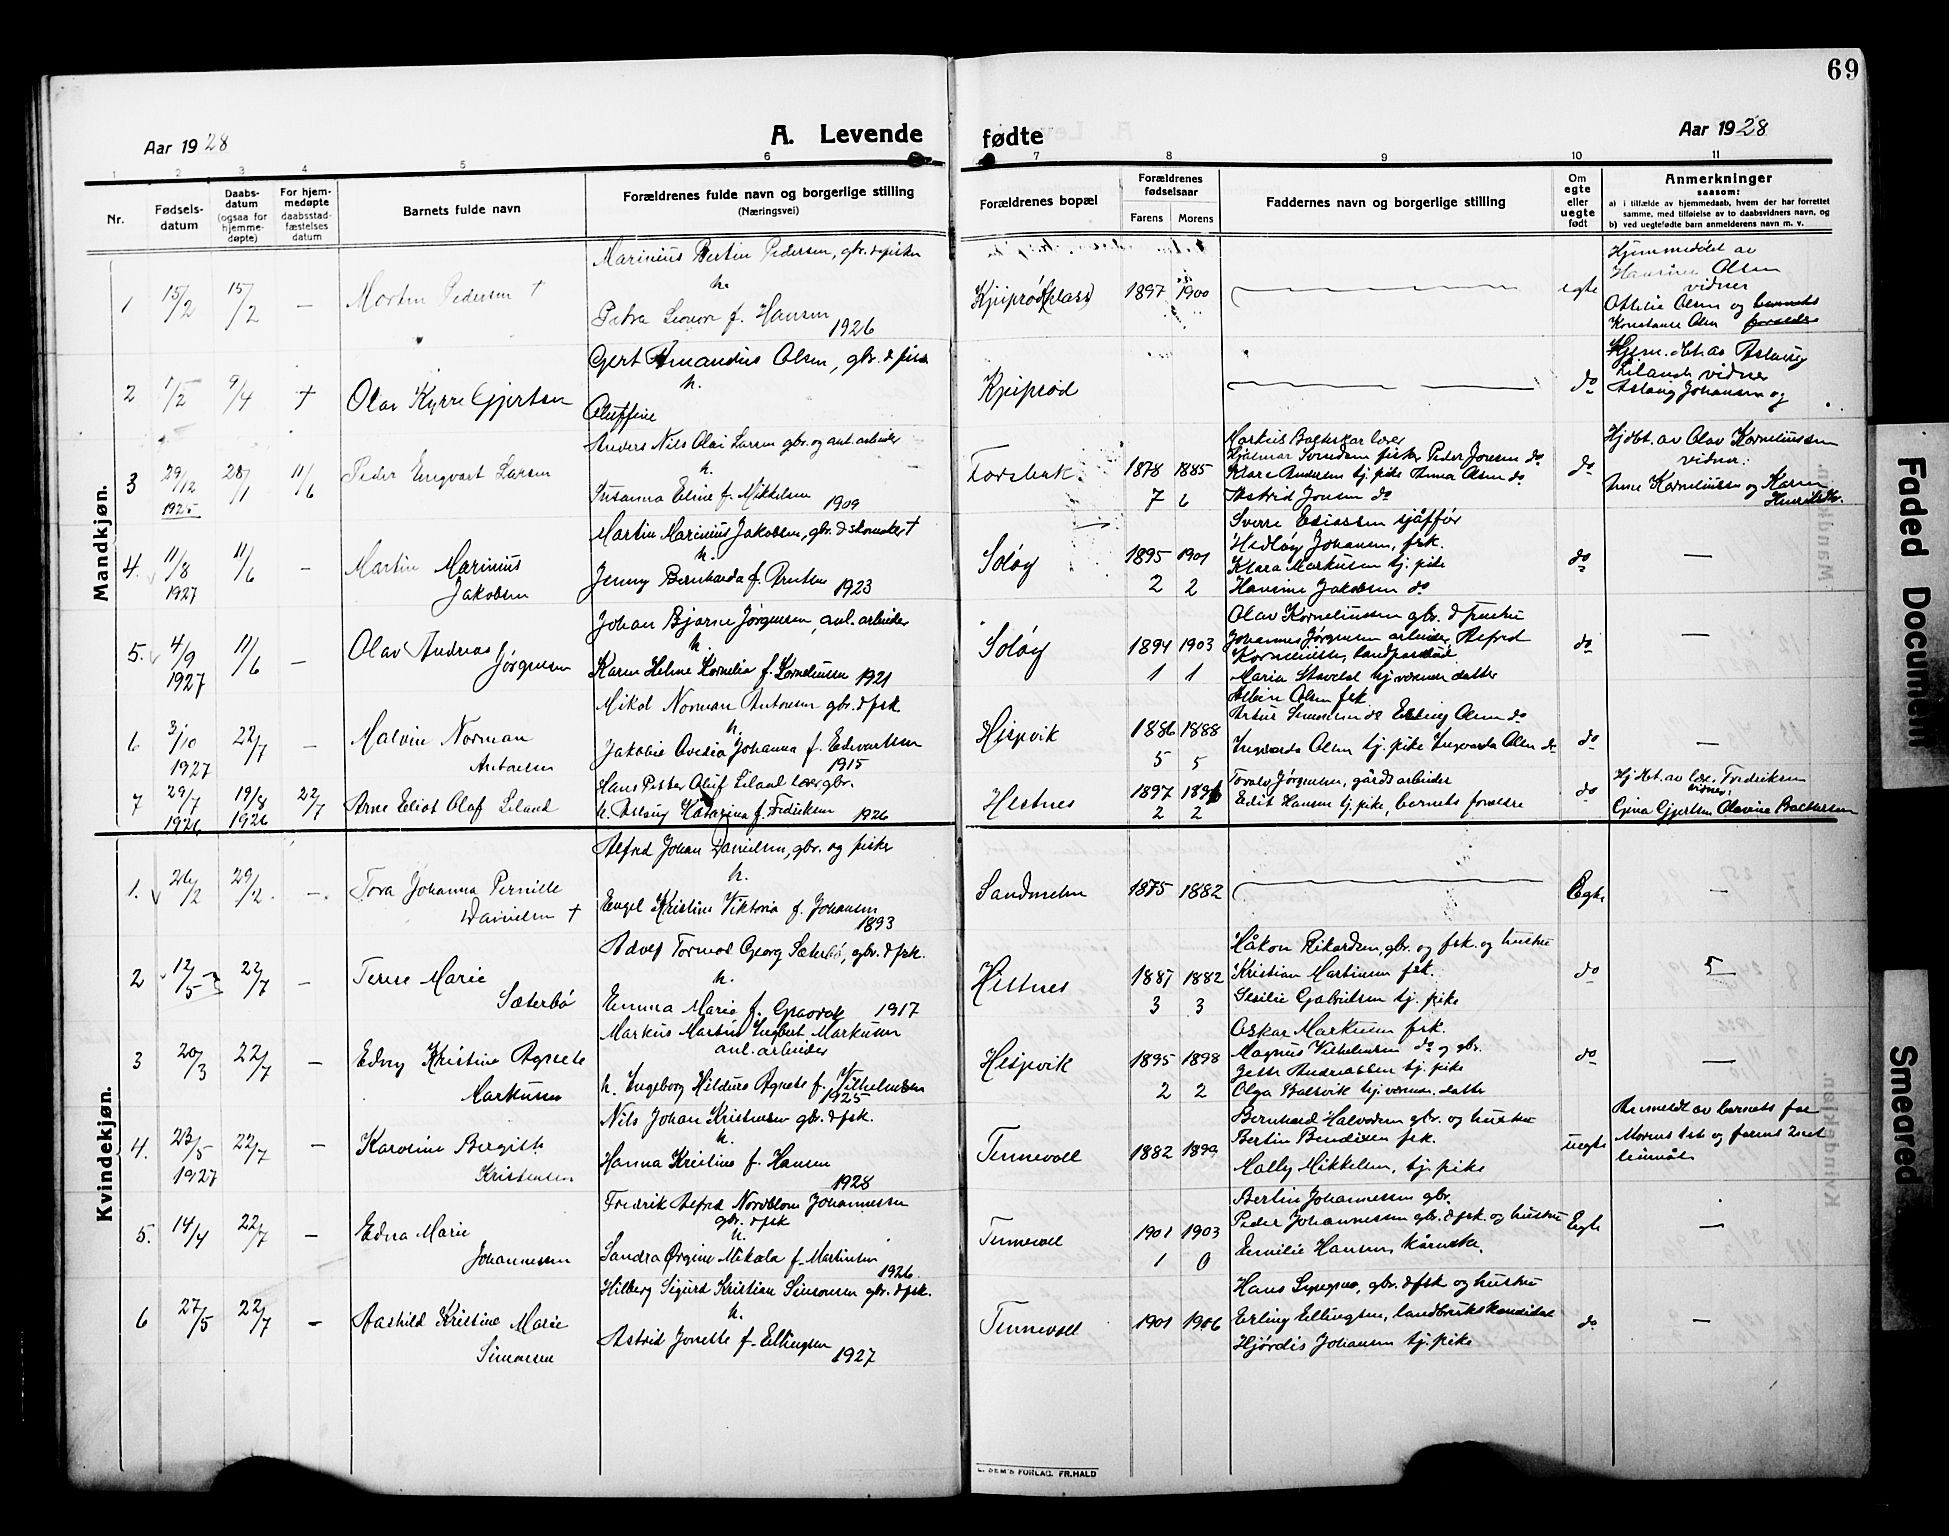 69
Aar 1928
A. Levende
fødte
Aar 1928
1 2 3 4 5 6 7 8 9 10 11
Nr.
Fødsels-
datum
Daabs-
datum
(ogsaa for
hjemme-
døpte)
For hjem-
medøpte
daabsstad-
fæstelses
datum
Barnets fulde navn
Forældrenes fulde navn og borgerlige stilling
(Næringsvei)
Forældrenes bopæl
Forældrenes
fødselsaar
Farens Morens
Faddernes navn og borgerlige stilling
Om
egte
eller
uegte
født
Anmerkninger
saasom:
a) i tilfælde av hjemmedaab, hvem der har forrettet
samme, med tilføielse av to daabsvidners navn, og
b) ved uegtefødte barn anmelderens navn m. v.
Mandkjøn.
1 15/2 15/2 — Morten Pedersen †
Marinius Bertin Pedersen, gbr. & fisker
h.
Petra Leonore f. Hansen
1926
1897 1900 egte
Hjemmedøbt av
Hansine Olsen
vidner
Otelie Olsen og barnets
Konstanse Olsen forældre
2 1/2 9/4 † Olav Kyrre Gjertsen
Gert Amandus Olsen, gbr. & fisker
h.
Oluffine
Kjeiprød
do
Hjem.døbt av Aslaug
Liland vidner
Aslaug Johansen og
3 29/12 1925 28/1 11/6 Peder Engvart Larsen
Anders Nils Olai Larsen gbr. og anl. arbeider
h.
Susanna Eline f. Mikkelsen
1909
Forsbak 1878 1885
7 6
Hjalmar Svendsen fisker Peder Jonsen do
Klara Andersen tj. pike Anna Olsen do
Astrid Jonsen do
do
Hjdbt. av Olav Korneliussen
vidner:
Anne Korneliussen og Karen
4. 11/8 1927 11/6 — Martin Marinius
Jakobsen
Martin Marinius Jakobsen, gbr. & skomaker †
h.
Jenny Bernharda f. Arntsen
1923
Soløy 1895 1901
2 2
Sverre Eriassen sjåffør
Hedløy Johansen, fsk.
Klara Markussen tj. pike
Hansine Jakobsen do
do —
5. 4/9 1927 11/6 — Olav Andreas
Jørgensen
Johan Bjarne Jørgensen, anl. arbeider
h.
Karen Helene Kornelia f. Korneliussen 1921
Soløy 1894 1903
1 1
Olav Korneliussen gbr. & hustru
Johannes Jørgensen arbeider, Alfred
Maria Stoveld hj.værende datter
do —
6 3/10 1927 22/7 — Malvin Norman
Antonsen
Mikal Norman Antonsen gbr. & fsk
h.
Jakobie Avesia Johanna f. Edvartsen
1915
Hesjevik 1886 1888
5 5
Albin Olsen fsk
Artur Simonsen do Erling Olsen do
Ingvarda Olsen tj. pike Ingvarda Olsen do
do —
7 29/7 1926 19/8 1926 22/7 Arne Eliot Olaf Liland
Hans Petter Oluf Liland lærer gbr.
h. Aslaug Katarina f. Fredriksen 1926
Hestnes 1897 1896
2 2
Toralv Jørgensen, gårdsarbeider
Edit Hansen tj. pike, barnets forældre
do
Hjdbt. av lær. Fredriksen
vidner:
Gina Gjertsen Olavina Baltersen
Kvindekjøn.
1. 26/2 29/2 — Tora Johanna Pernille
Danielsen †
Alfred Johan Danielsen, gbr. og fisker
h.
Engel Kristine Viktoria f. Johansen
1893
Sandmelen 1875 1882 Egte —
2 12/5 22/7 — Terese Marie
Sæterbø
Adolf Tormod Georg Sæterbø, gbr. & fsk.
h.
Emma Marie f. Graavok 1917
Hestnes 1887 1882
3 3
Håkon Rikardsen, gbr. og fsk. og hustru
Kristian Martinsen fsk.
Sesilie Gabrielsen tj. pike
do
3 20/3 22/7 — Edny Kristine Agnete
Markussen
Markus Martin Ingbert Markussen
anl. arbeider
h. Ingeborg Hildurs Agnete f. Vilhelmsen
1925
Hesjevik 1895 1898
2 2
Oskar Markussen fsk.
Magnus Vilhelmsen do og gbr.
Jette Andreassen tj. pike
Olga Balsvik hj.værende datter
do —
4. 23/5 1927 22/7 — Karoline Bergitte
Kristensen
Nils Johan Kristensen gbr. & fsk.
h.
Hanna Kristine f. Hansen
1928
Tennevoll 1882 1899
Bernhard Halvorsen gbr. og hustru
Bertin Bendixen fsk.
Molly Mikkelsen, tj. pike
uegte
Anmeldt av barnets far
Morens 1ste og farens 2net
leiermål
5. 14/4 22/7 — Edna Marie
Johannessen
Fredrik Alfred Nordblom Johannessen
gbr. & fsk
h.
Sandra Ørgine Mikala f. Martinsen
1926
Tennevoll 1901 1903
1 0
Bertin Johannessen gbr.
Peder Johannessen gbr. & fsk. og hustru
Emilie Hansen
Egte —
6 27/5 22/7 — Aashild Kristine Marie
Simonsen
Hilberg Sigurd Kristian Simonsen gbr. & fsk.
h.
Astrid Jonette f. Ellingsen
1927
Tennevoll 1901 1906
Hans Lysegren, gbr. & fsk og hustru
Erling Ellingsen, landbrukskandidat
Hjørdis Johansen tj. pike
do —
E. SEM'S FORLAG. FR.HALD
Faded Document
Smeared